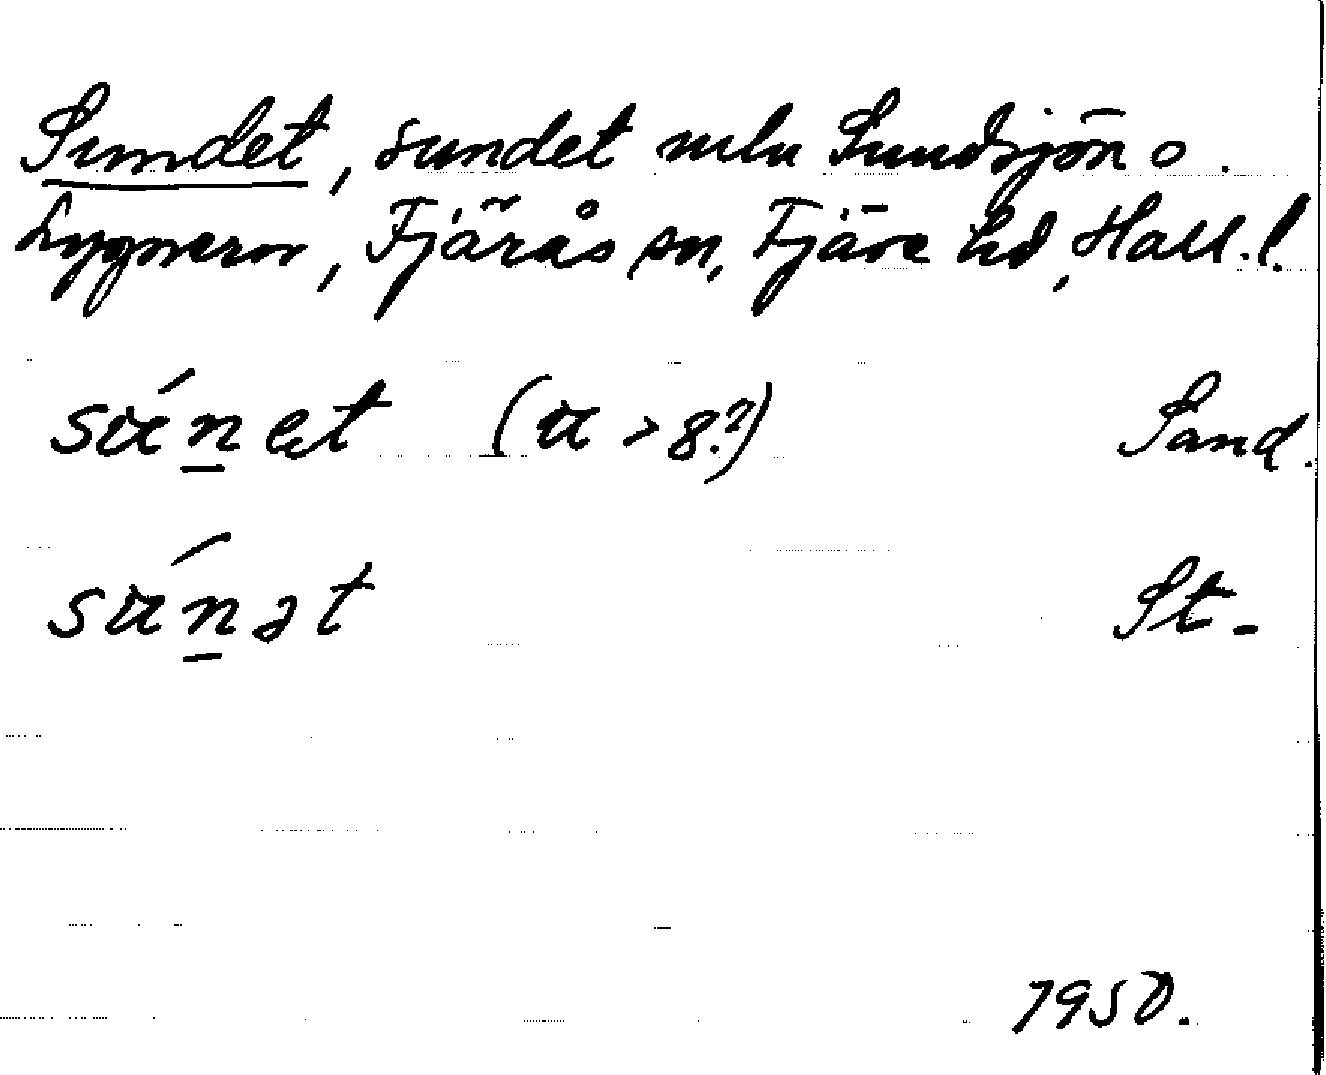 Sundet, sundet mln Sundsjön o.
Lygnern, Fjärås sn, Fjäre hd, Hall. l.
sú̵n̲et (u > 8?) Sand.
sú̵n̲ət St.
1950.